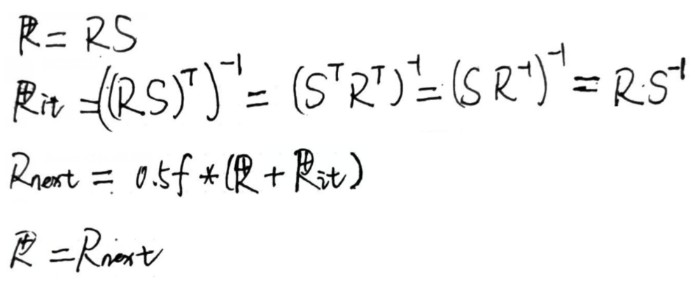 R = RS
Rit = ((RS)^T)^-1 = (S^T R^T)^-1 = (S R^-1)^-1 = R S^-1
Rnext = 0.5f * (R + Rit)
R = Rnext